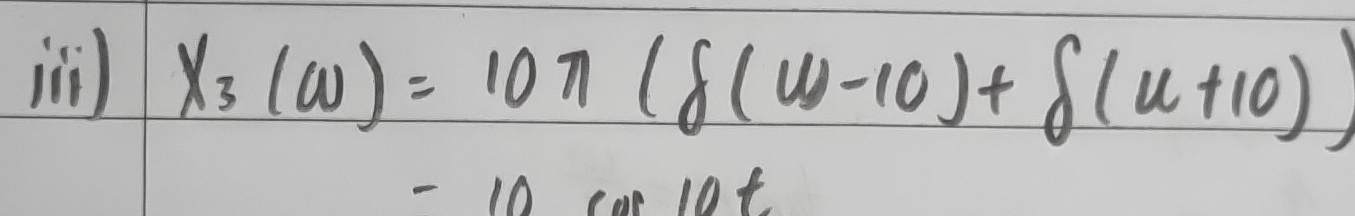 iii) X₃ (ω) = 10 π (δ(ω-10) + δ(u+10))
= 10 cos 10 t